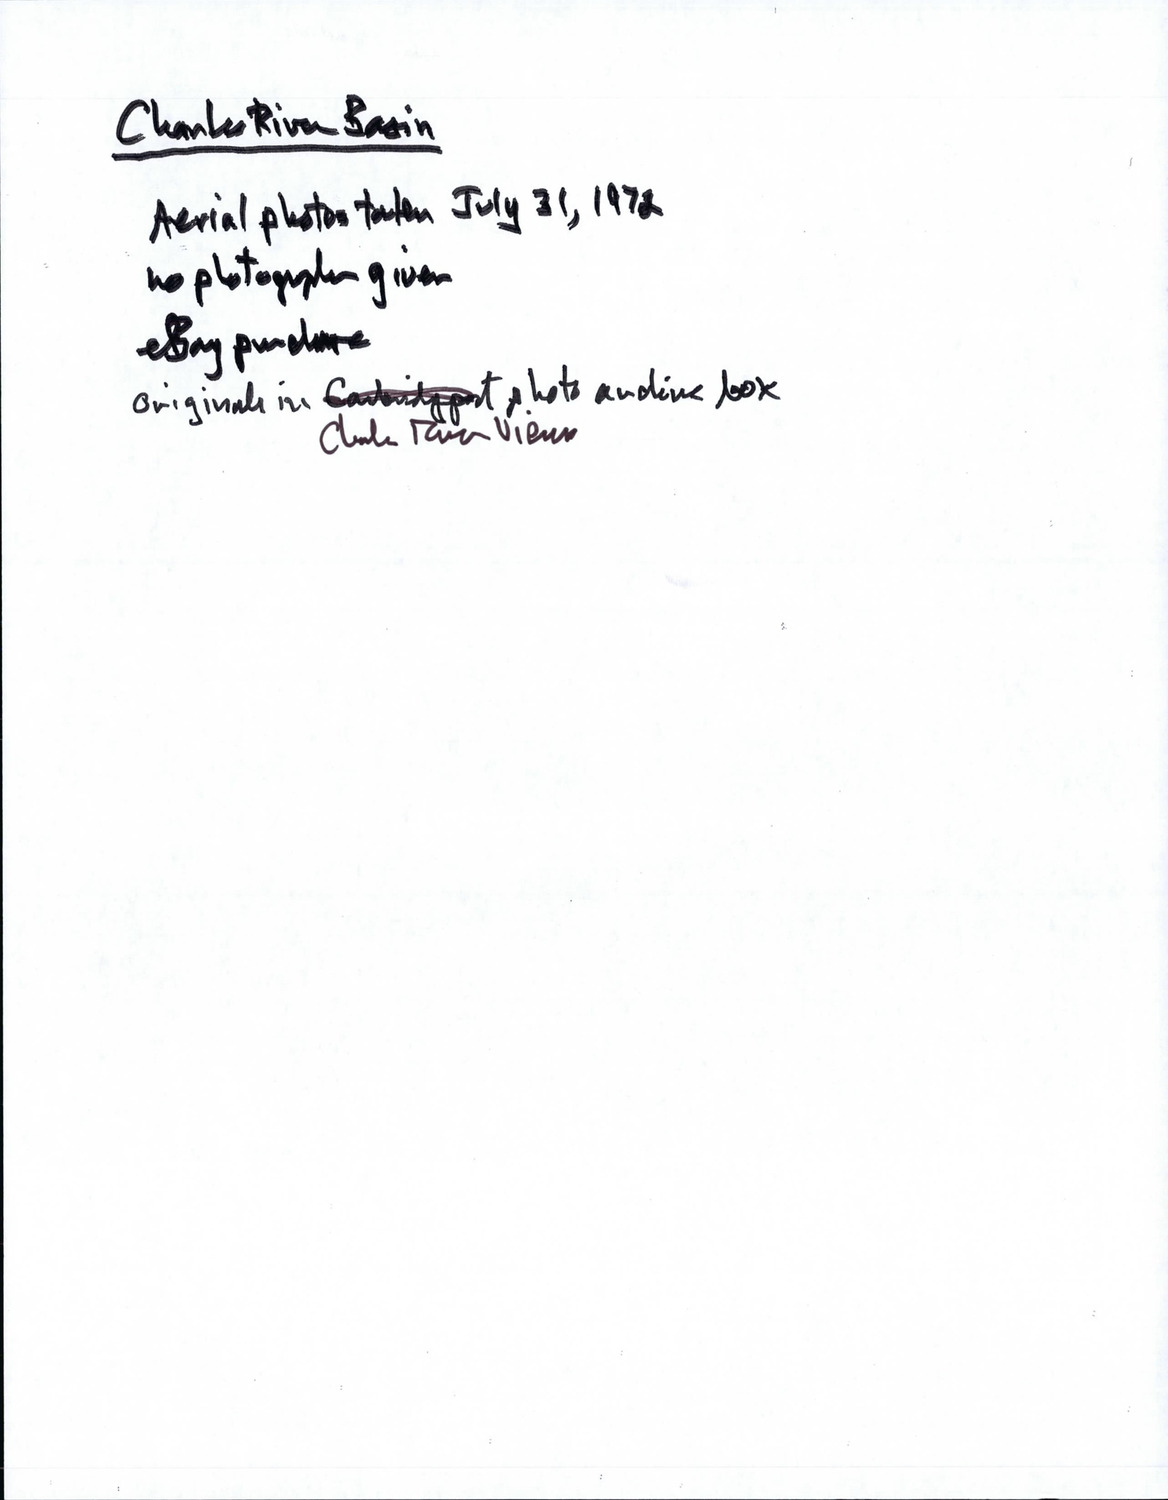 Charles River Basin
Aerial photos taken July 31, 1972
no photographer given
eBay purchase
originals in Cambridgeport photo archive box
Charles River Views